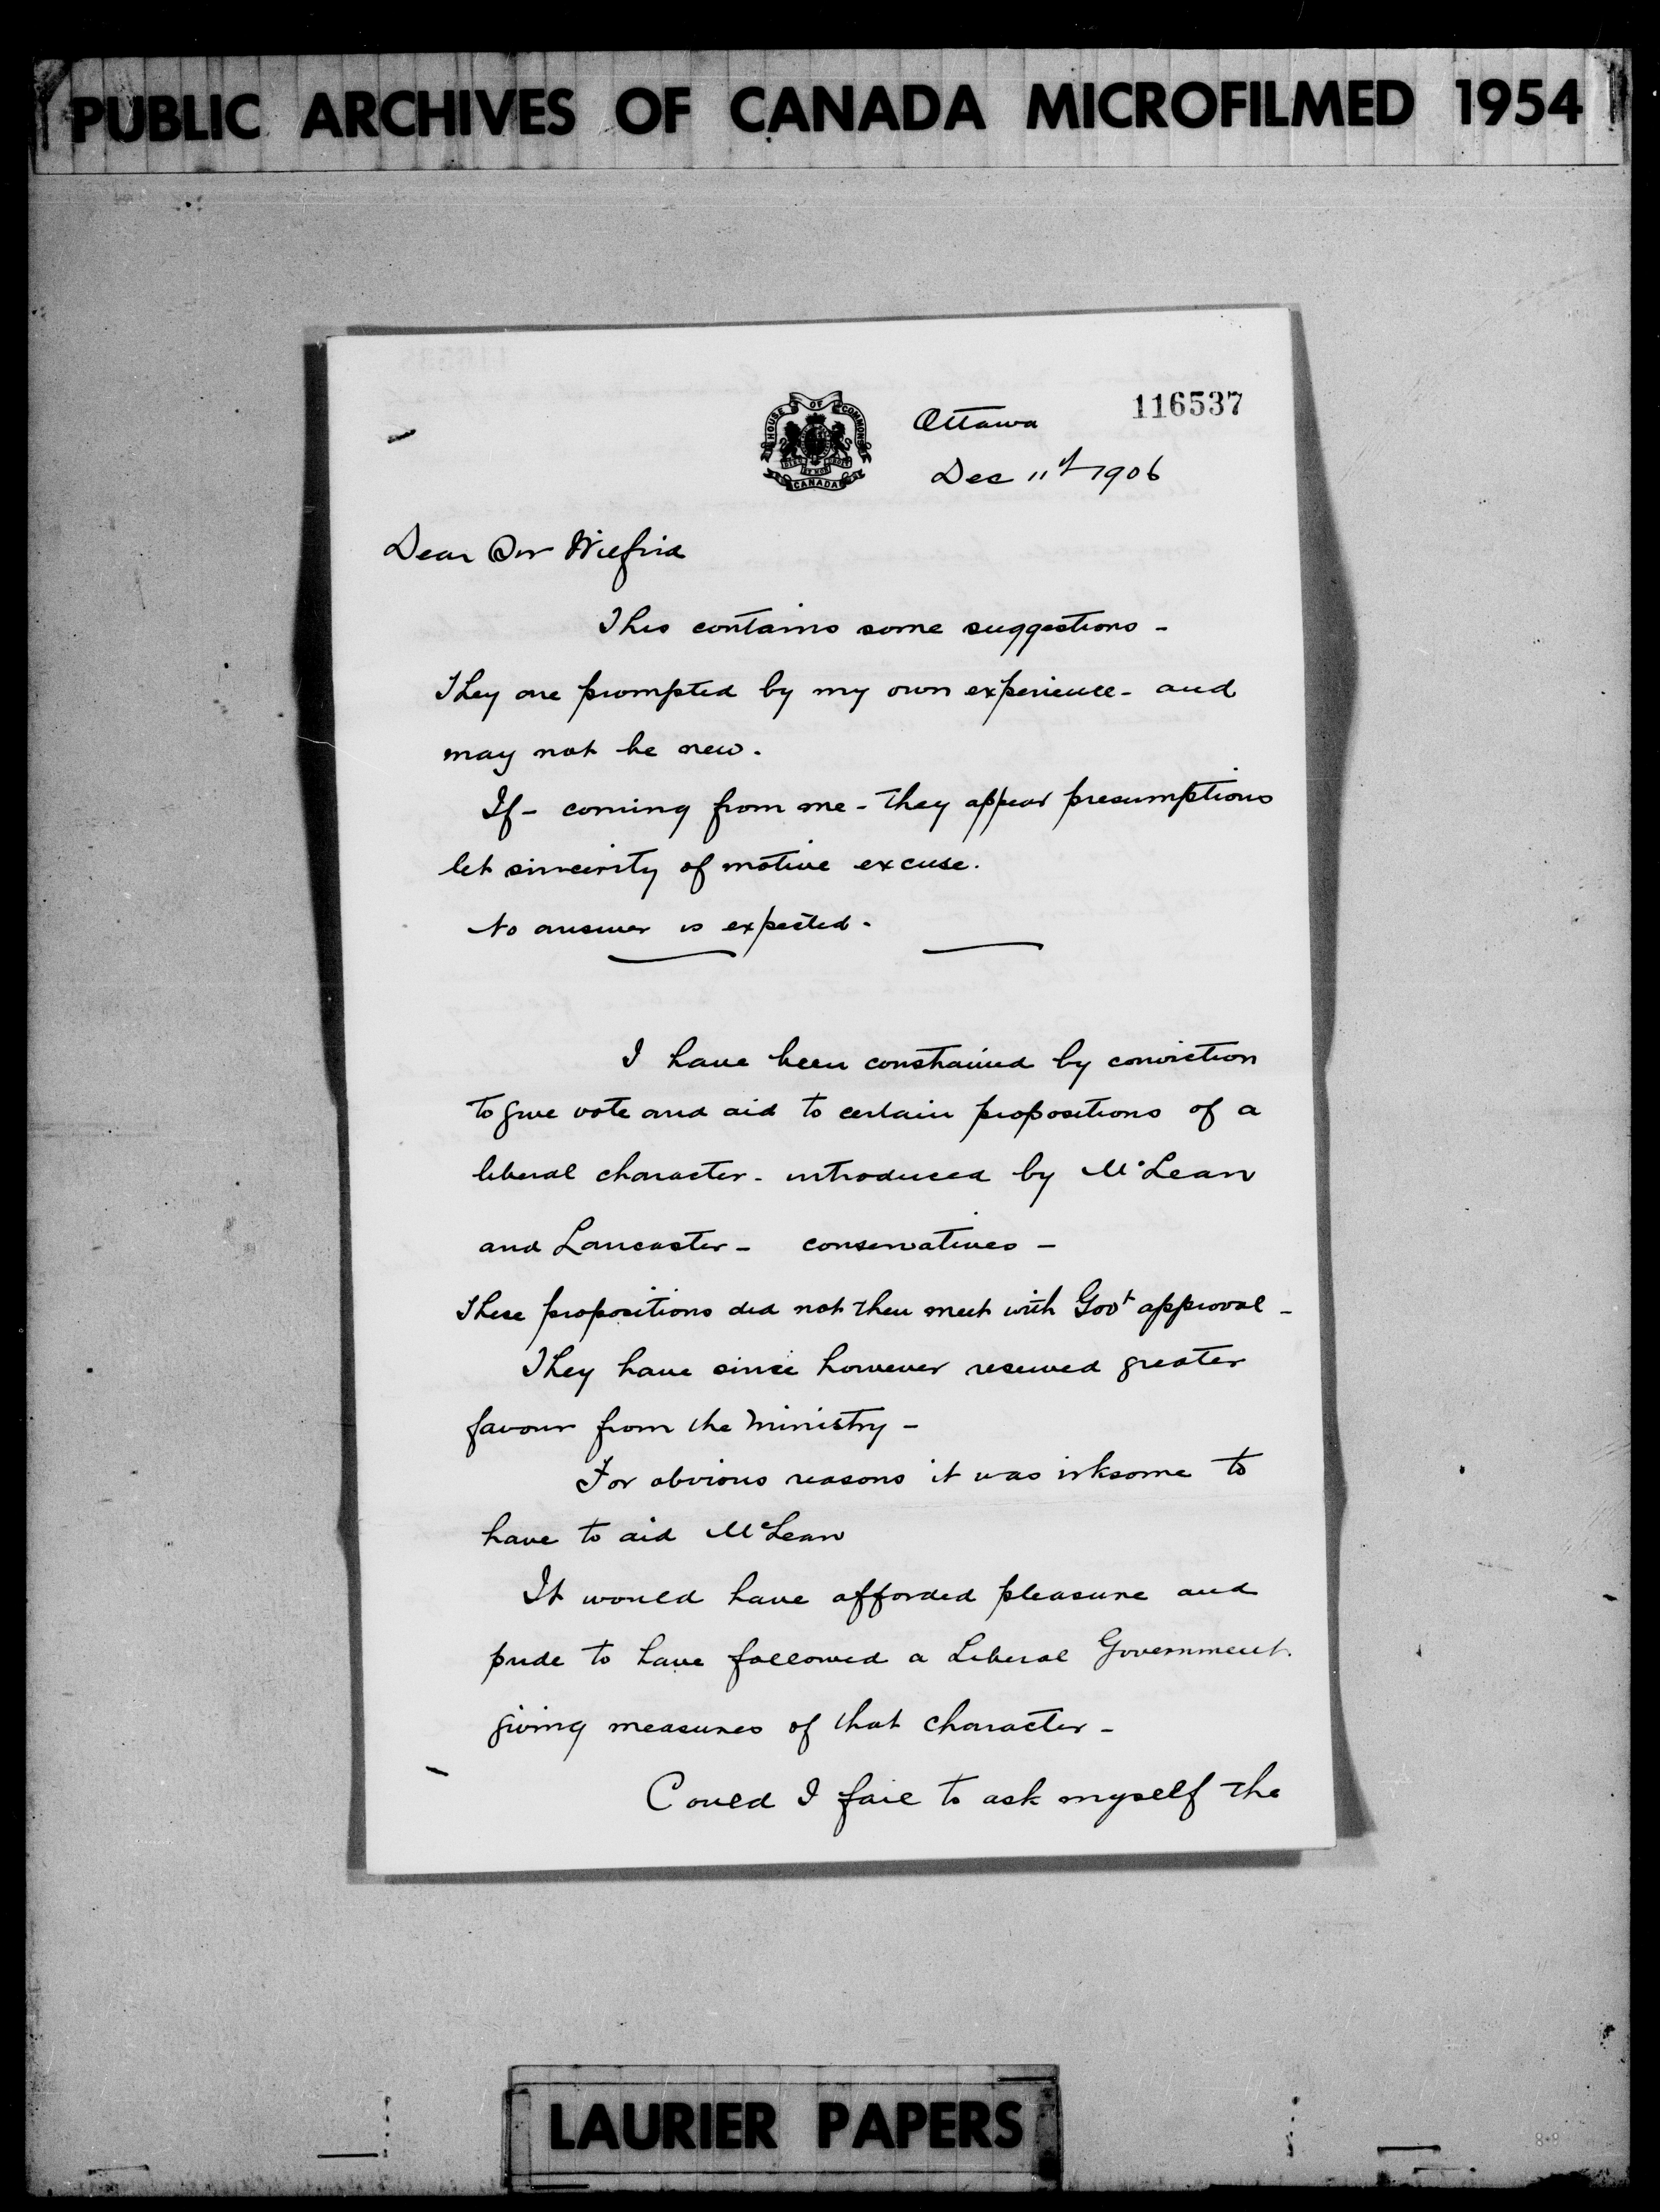 PUBLIC ARCHIVES OF CANADA MICROFILMED 1954
116537
HOUSE OF COMMONS
CANADA
Ottawa
Dec 11th 1906
Dear Sir Wilfrid
This contains some suggestions -
They are prompted by my own experience - and
may not be new.
If - coming from me - they appear presumptious
let sincerity of motive excuse.
No answer is expected.
I have been constrained by conviction
to give vote and aid to certain propositions of a
liberal character - introduced by McLean
and Lancaster - conservatives -
These propositions did not then meet with Govt approval -
They have since however received greater
favour from the Ministry -
For obvious reasons it was irksome to
have to aid McLean
It would have afforded pleasure and
pride to have followed a Liberal Government
giving measures of that character -
Could I fail to ask myself the
LAURIER PAPERS